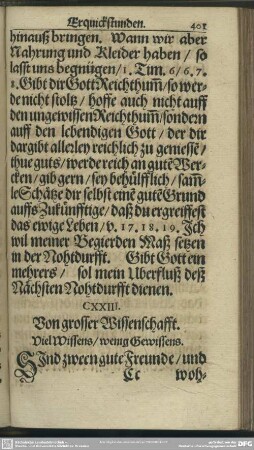 Erquickstunden. 401
hinauß bringen. Wann wir aber
Nahrung und Kleider haben / so
lasst uns begnügen / 1. Tim. 6 / 6. 7.
8. Gibt dir Gott Reichthum̃ / so wer-
de nicht stoltz / hoffe auch nicht auff
den ungewissen Reichthum̃ / sondern
auff den lebendigen Gott / der dir
dargibt allerley reichlich zu geniessē /
thue guts / werde reich an gutē Wer-
cken / gib gern / sey behülfflich / sam̃-
le Schätze dir selbst einē gutē Grund
auffs Zukünfftige / daß du ergreiffest
das ewige Leben / v. 17. 18. 19. Ich
wil meiner Begierden Maß setzen
in der Nohtdurfft. Gibt Gott ein
mehrers / sol mein Uberfluß deß
Nächsten Nohtdurfft dienen.
CXXIII.
Von grosser Wissenschafft.
Viel Wissens / wenig Gewissens.
SInd zween gute Freunde / und
Cc woh-